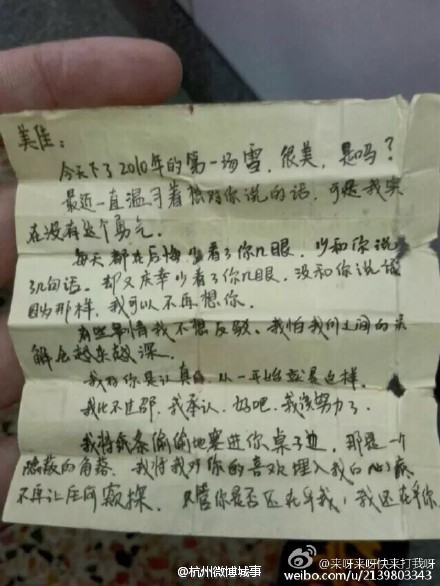 美佳：
今天下了2010年的第一场雪，很美，是吗？
最近一直温习着想对你说的话，可是我实
在没有这个勇气。
每天都在后悔少看了你几眼，少和你说
了几句话。却又庆幸少看了你几眼，没和你说话
因为那样，我可以不再想你。
有些事情我不想反驳，我怕我们之间的误
解会越来越深。
我对你是认真的，从一开始就是这样。
我比不过邵，我承认。好吧，我该努力了。
我将纸条偷偷地塞进你桌子边，那是一个
隐蔽的角落。我将我对你的喜欢埋入我的心底
不再让任何窥探。只管你是否还在乎我，我还在乎你。
@杭州微博城事
@来呀来呀快来打我呀
weibo.com/u/2139803343